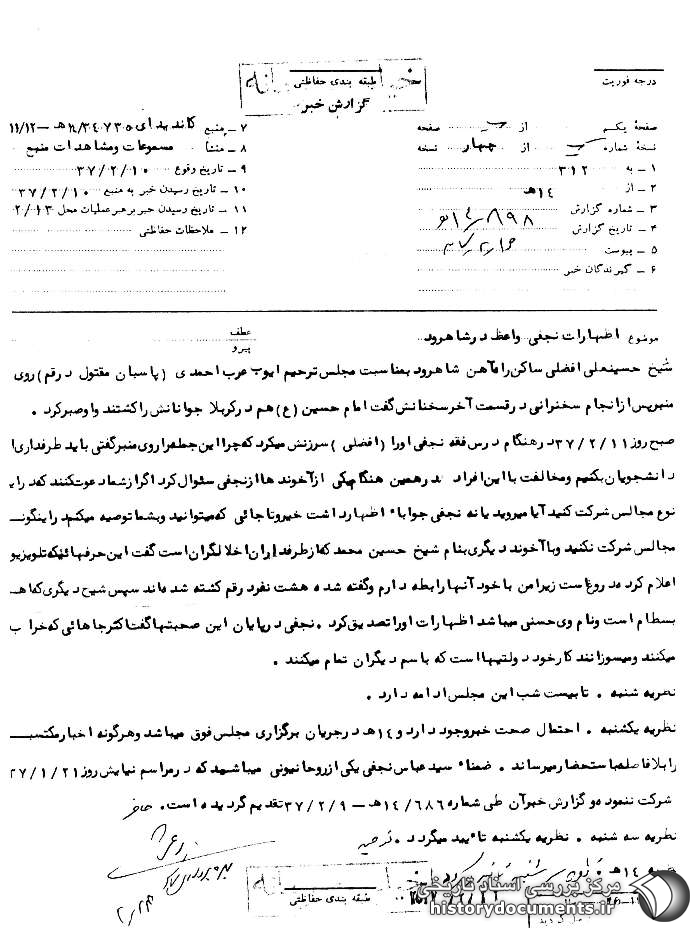 طبقه بندی حفاظتی
گزارش خبر
درجه فوریت
صفحهٔ یکم از صفحه
نسخهٔ شماره از چهار نسخه
۱ – به ۳۱۲
۲ – از ۱۴هـ
۳ – شماره گزارش ۱۴/۸۹۸هـ
۴ – تاریخ گزارش
۵ – پیوست
۶ – گیرندگان خبر
۷ – منبع کاندیدای
۸ – منشأ مسموعات ومشاهدات منبع
۹ – تاریخ وقوع ۳۷/۲/۱۰
۱۰ – تاریخ رسیدن خبر به منبع ۳۷/۲/۱۰
۱۱ – تاریخ رسیدن خبر برهبر عملیات محل ۲/۱۳
۱۲ – ملاحظات حفاظتی
موضوع اظهارات نجفی واعظ درشاهرود
عطف
پیرو
شیخ حسینعلی افضلی ساکن راه‌آهن شاهرود بمناسبت مجلس ترحیم ایوب عرب احمدی (پاسبان مقتول درقم) روی
منبرپس ازانجام سخنرانی درقسمت آخرسخنانش گفت امام حسین (ع) هم درکربلا جوانانش راکشتند واوصبرکرد .
صبح روز ۳۷/۲/۱۱ درهنگام درس فقه نجفی اورا (افضلی) سرزنش میکرد که چرااین جمله راروی منبرگفتی باید طرفداری از
دانشجویان بکنیم ومخالفت بااین افراد درهمین هنگام یکی ازآخوندها ازنجفی سئوال کرد اگرازشما دعوت کنند که دراین
نوع مجالس شرکت کنید آیا میروید یانه نجفی جواباً اظهارداشت خیروتاجائی که میتوانید وبشما توصیه میکنم دراینگونه
مجالس شرکت نکنید وباآخوند دیگری بنام شیخ حسین محمد که ازطرفداران اخلالگران است گفت این حرفهائیکه تلویزیون
اعلام کرده دروغ است زیرامن باخود آنها رابطه دارم وگفته شده هشت نفردرقم کشته شده‌اند سپس شیخ دیگری که اهل
بسطام است ونام وی حسنی میباشد اظهارات اورا تصدیق کرد . نجفی درپایان این صحبتها گفت اکثرجاهائی که خراب
میکنند ومیسوزانند کارخود دولتیها است که باسم دیگران تمام میکنند .
نظریه شنبه . تابیست شب این مجلس ادامه دارد .
نظریه یکشنبه . احتمال صحت خبروجود دارد و ۱۴هـ درجریان برگزاری مجلس فوق میباشد وهرگونه اخبارمکتسبه
رابلافاصله باستحضار میرساند . ضمناً سید عباس نجفی یکی ازروحانیونی میباشد که درمراسم نمایش روز ۲۷/۱/۲۱
شرکت ننموده و گزارش خبرآن طی شماره ۱۴/۶۸۶هـ – ۳۷/۲/۹ تقدیم گردیده است .
نظریه سه شنبه . نظریه یکشنبه تأیید میگردد .
طبقه بندی حفاظتی
مرکز بررسی اسناد تاریخی
historydocuments.ir